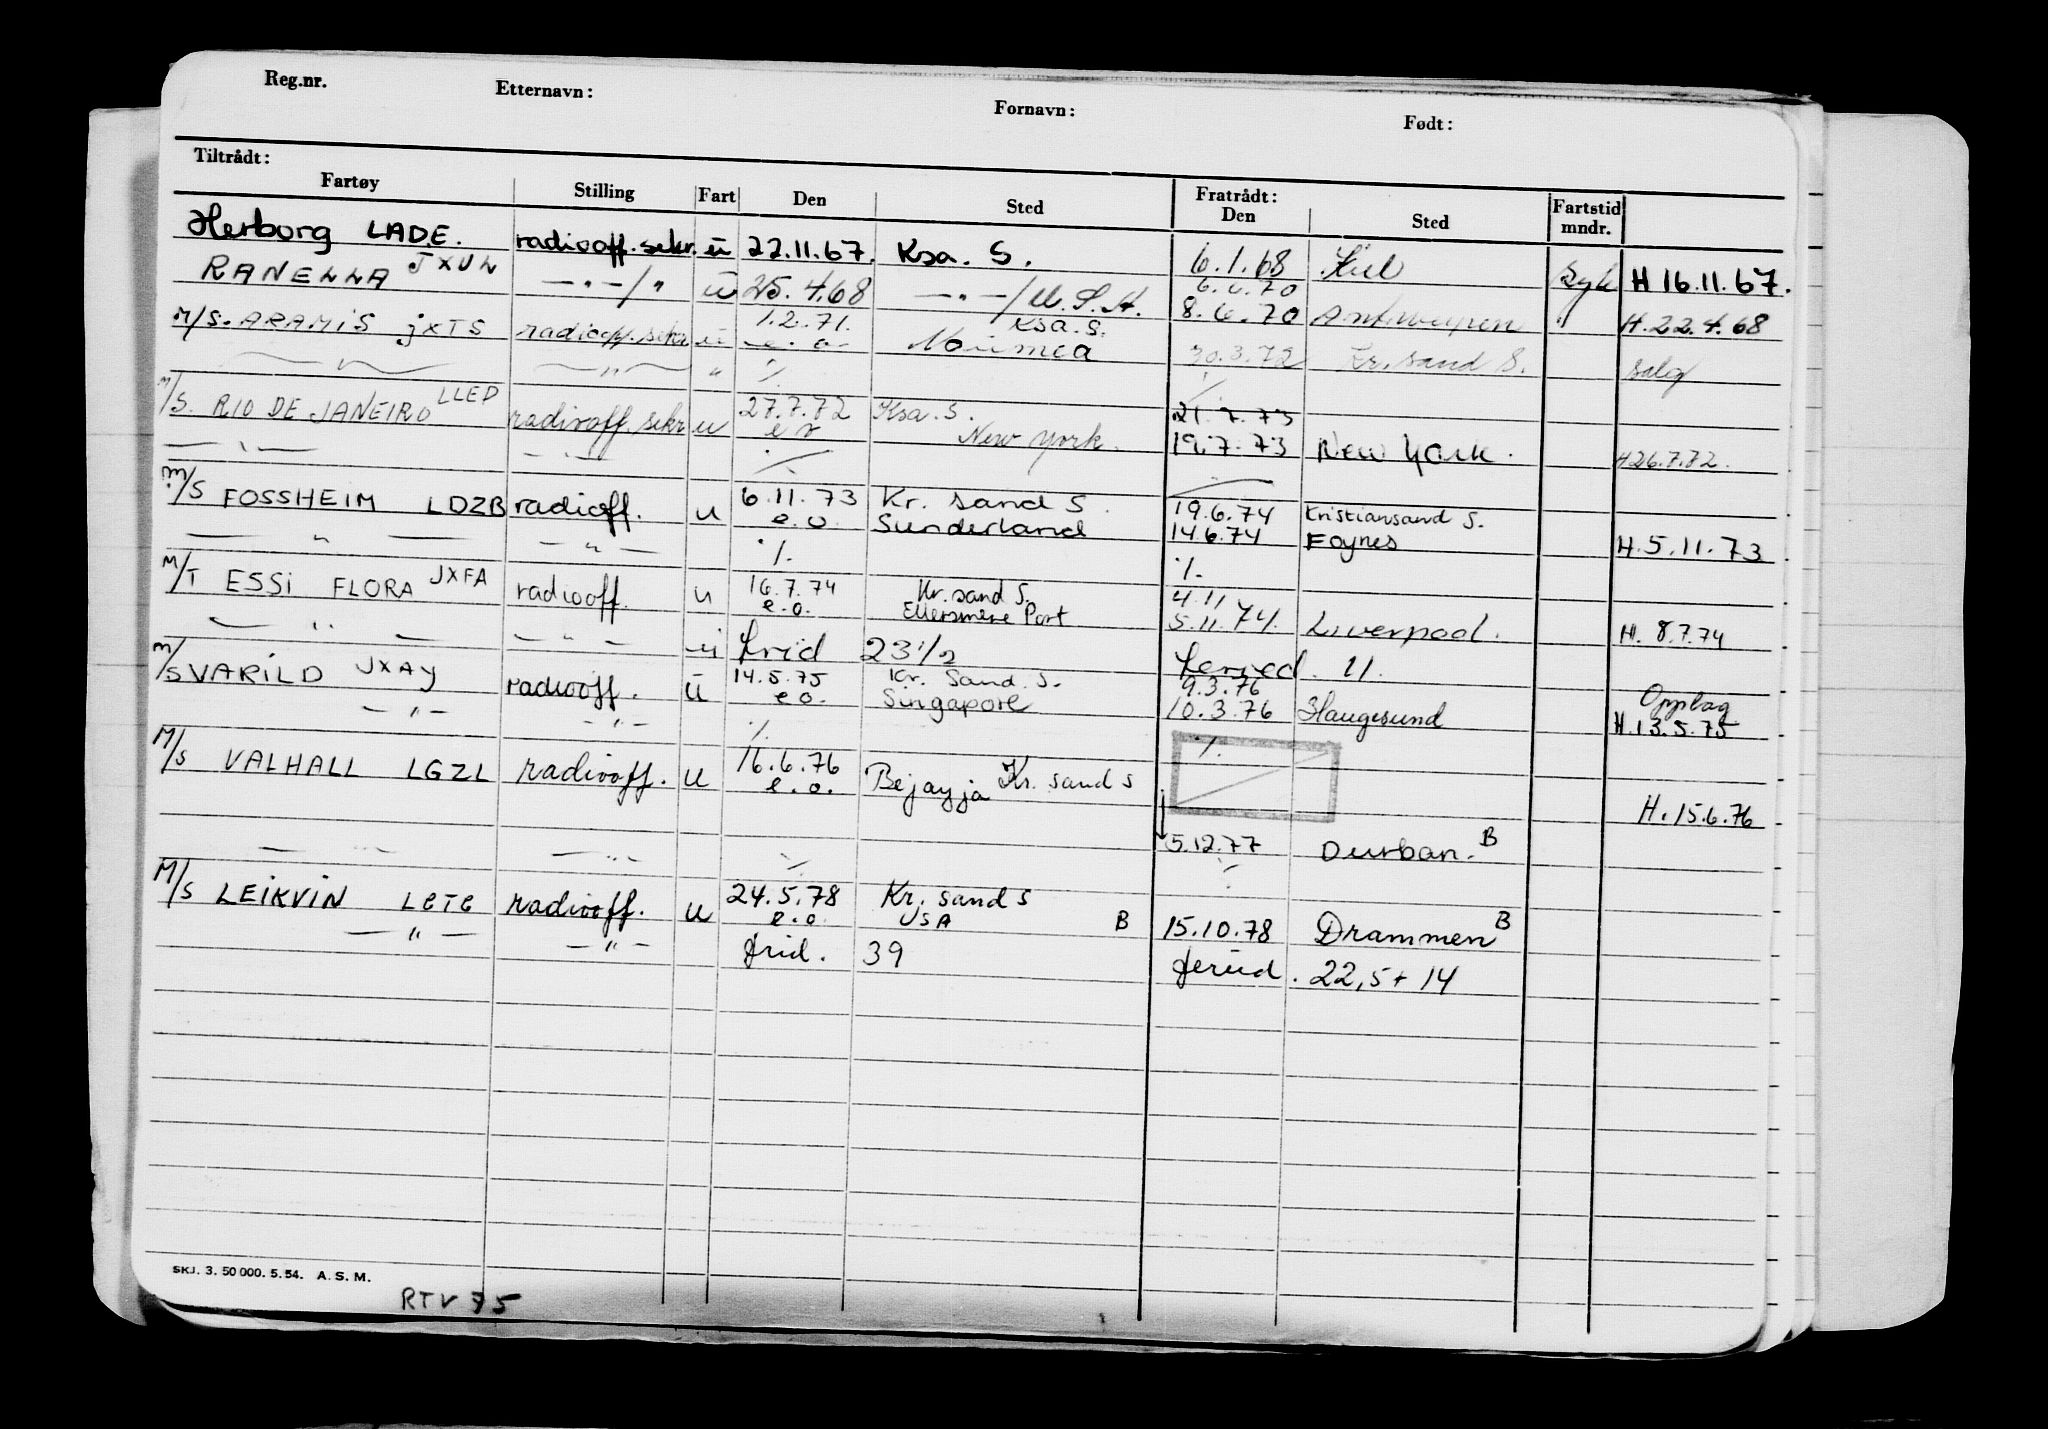 Reg.nr. Etternavn: Fornavn: Født:
Tiltrådt: Fratrådt:
Fartøy Stilling Fart Den Sted Den Sted Fartstid mndr.
Herborg LADE. radiooff. sekr. u 22.11.67. Ksa. S. 6.1.68 Kiel syk H 16.11.67.
RANELLA JXUL —"—/" u 25.4.68 —"—/U.S.A. 6.6.70
8.6.70 Antwerpen " H.22.4.68
M/S. ARAMIS JXTS radiooff. sekr u 1.2.71. Ksa. S.
e.o. Noumea 30.3.72 Kr. sand S. salg
—"— —"— " ./. ./.
M/S. RIO DE JANEIRO LLEP radiooff. sekr u 27.7.72 Ksa. S. 21.7.73
e o New York. 19.7.73 New York. H 26.7.72.
—"— —"— ./.
M/S FOSSHEIM LDZB radiooff. u 6.11.73 Kr. sand S. 19.6.74 Kristiansand S.
e.o. Sunderland 14.6.74 Foynes H.5.11.73
—"— —"— ./. ./.
M/T ESSI FLORA JXFA radiooff. u 16.7.74 Kr. sand S. 4.11
e.o. Ellesmere Port 5.11.74. Liverpool. H. 8.7.74
—"— —"— u frid 23 1/2 feried. 11.
M/S VARILD JXAY radiooff. u 14.5.75 Kr. Sand. S. 9.3.76 Opplag
—"— —"— e o. Singapore 10.3.76 Haugesund H.13.5.75
./. ./.
M/S VALHALL LGZL radiooff. u 16.6.76 Kr. sand S
e.o. Bejayja H. 15.6.76
5.12.77 Durban. B
—"— —"— ./. ./.
M/S LEIKVIN LCTG radiooff. u 24.5.78 Kr. sand S
e.o. USA B 15.10.78 Drammen B
—"— —"— frid. 39 feried. 22,5 + 14
SKJ. 3. 50 000. 5. 54. A. S. M.
RTV 75